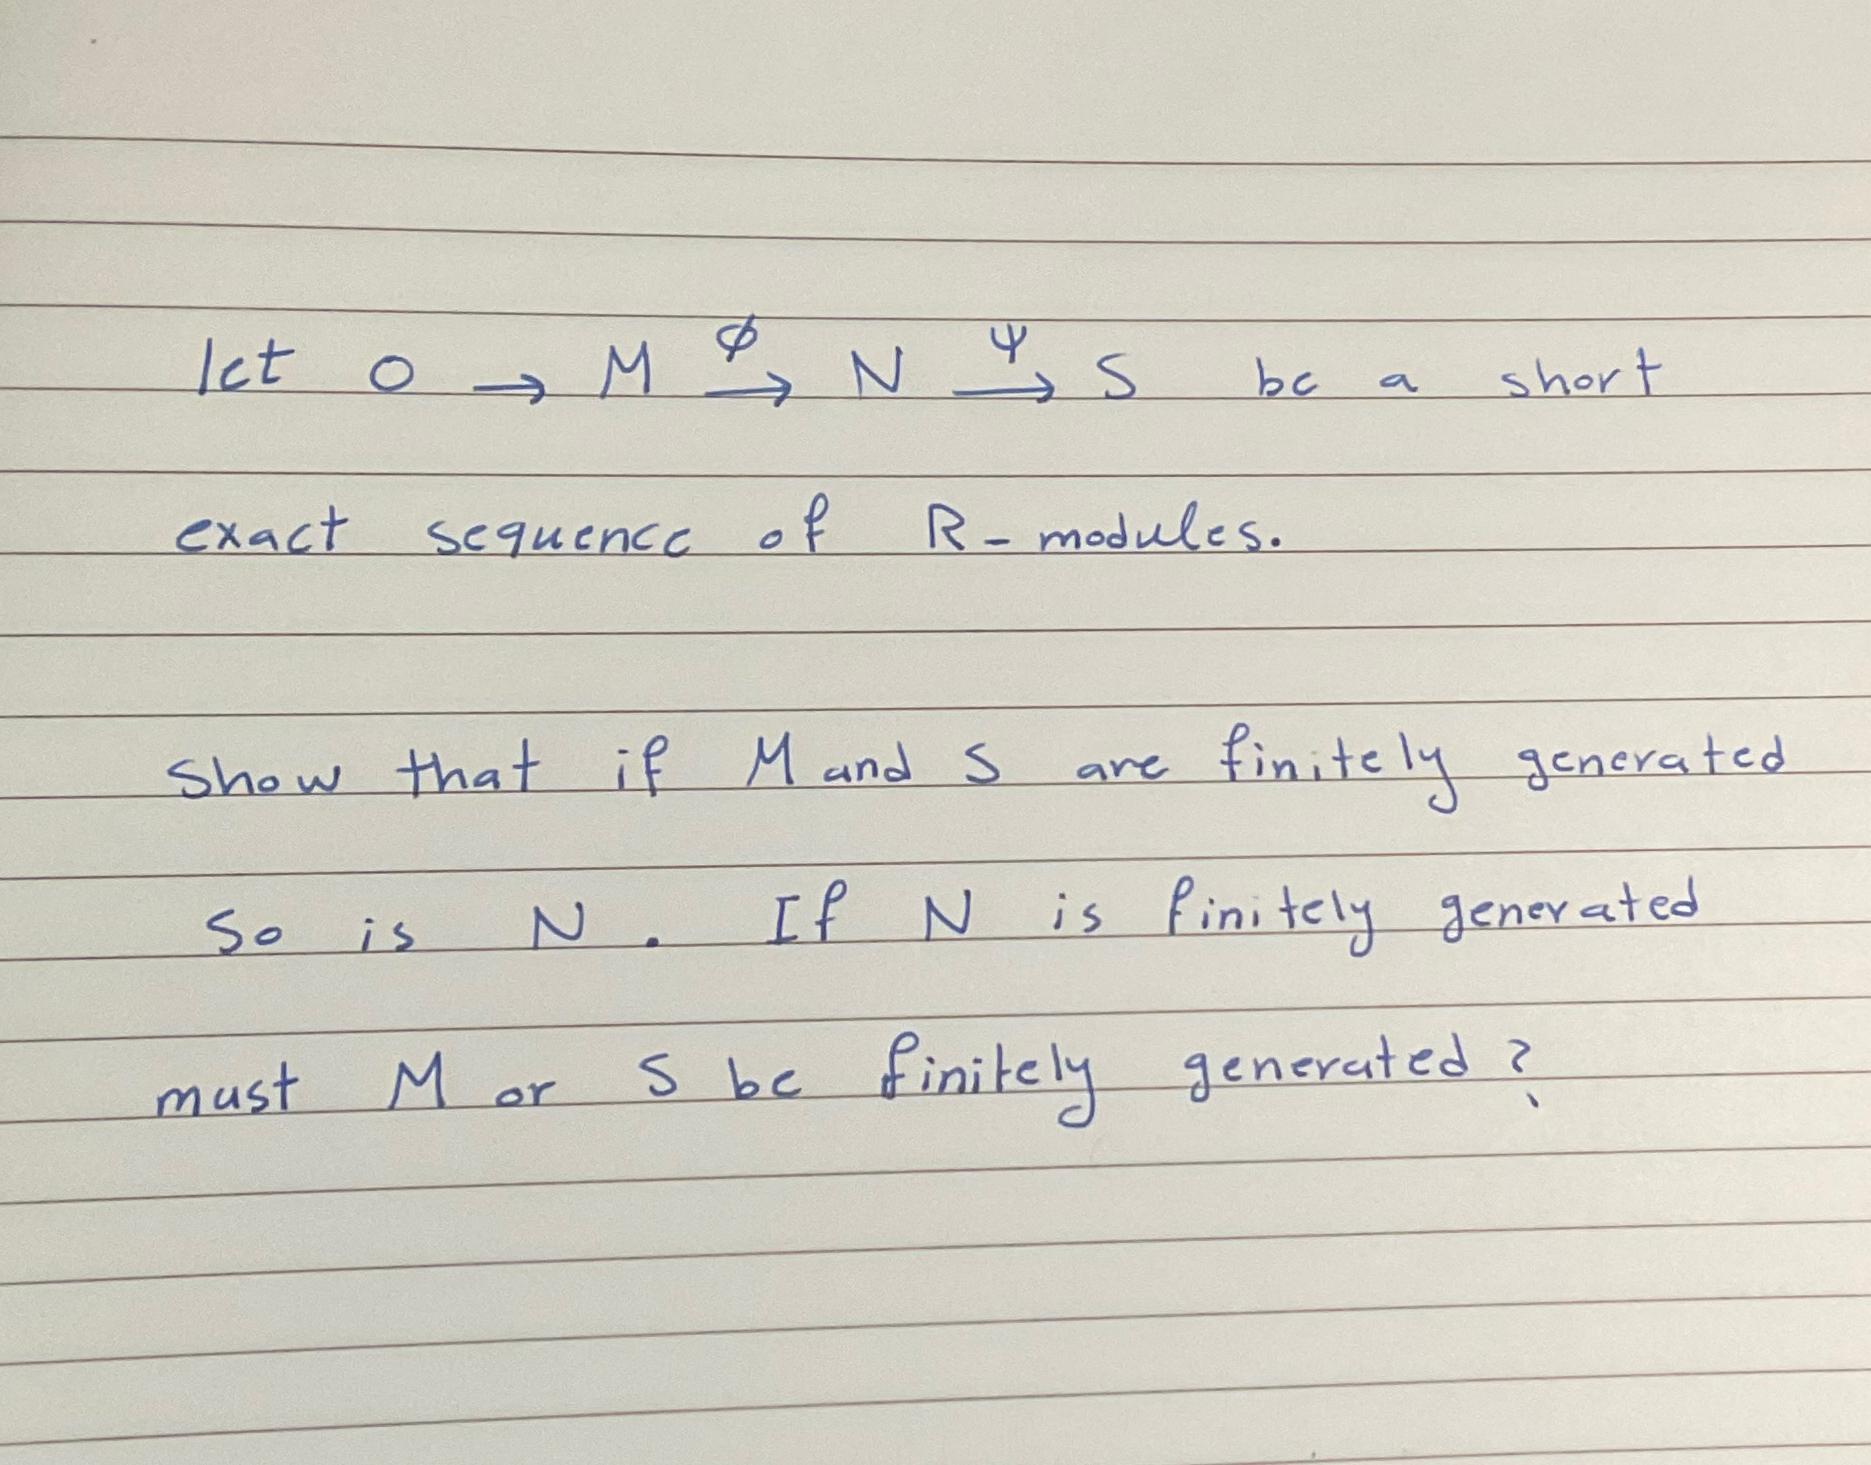 let 0 → M ϕ→ N ψ→ S be a short
exact sequence of R-modules.
Show that if M and S are finitely generated
So is N. If N is finitely generated
must M or S be finitely generated?